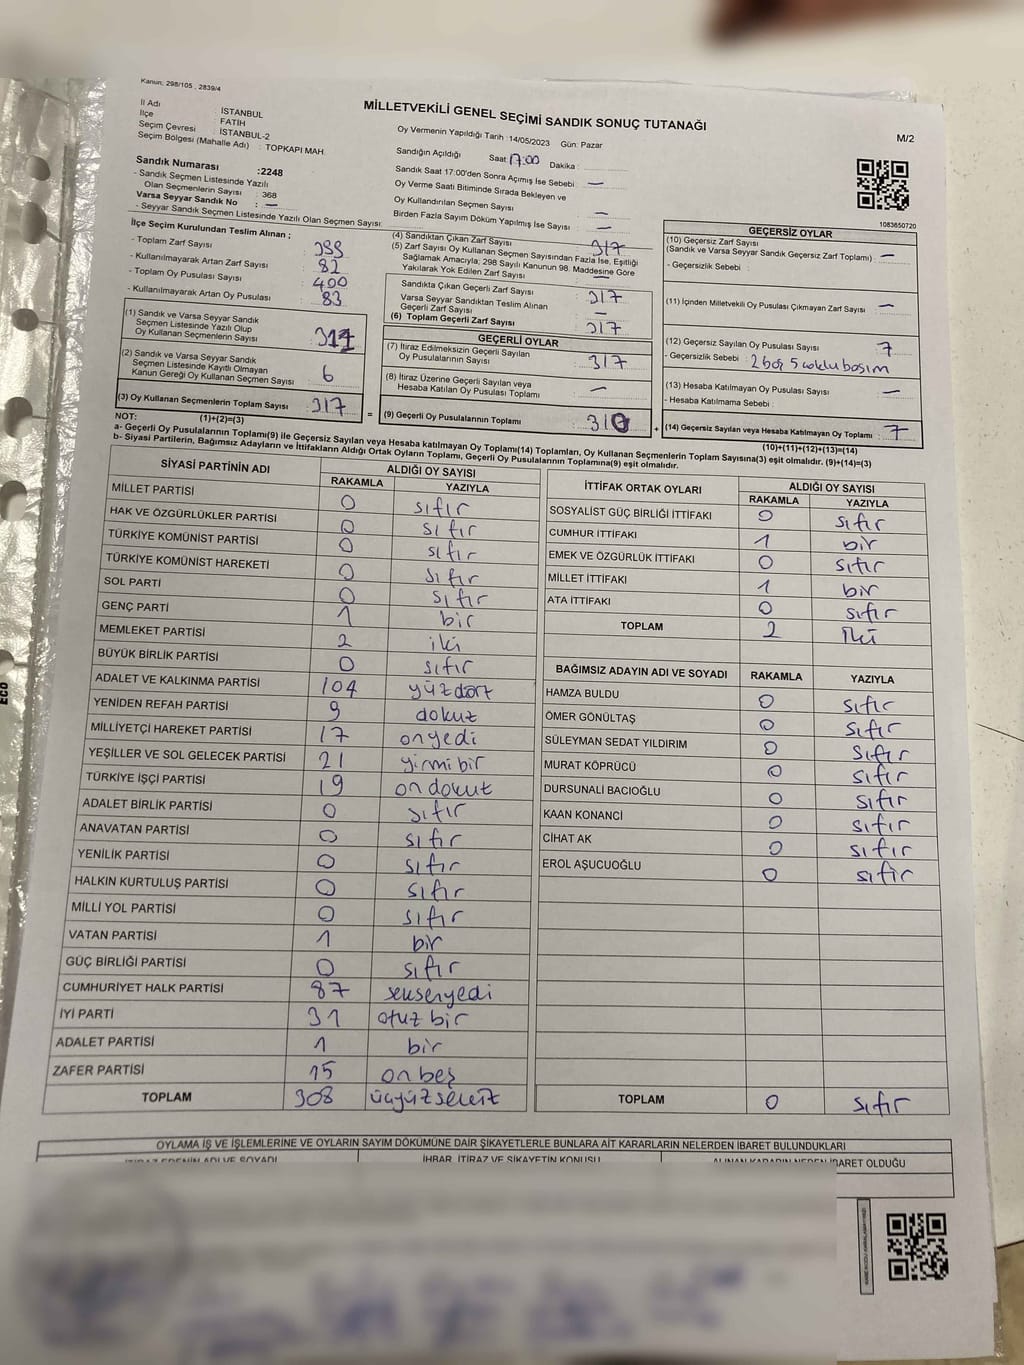 Kanun: 298/105 , 2839/4
MİLLETVEKİLİ GENEL SEÇİMİ SANDIK SONUÇ TUTANAĞI
M/2
İl Adı : İSTANBUL
İlçe : FATİH
Seçim Çevresi : İSTANBUL-2
Seçim Bölgesi (Mahalle Adı) : TOPKAPI MAH.
Oy Vermenin Yapıldığı Tarih : 14/05/2023 Gün: Pazar
Sandığın Açıldığı Saat 17:00 Dakika :
Sandık Saat 17:00'den Sonra Açılmış İse Sebebi : —
Oy Verme Saati Bitiminde Sırada Bekleyen ve
Oy Kullandırılan Seçmen Sayısı : —
Birden Fazla Sayım Döküm Yapılmış İse Sayısı : —
Sandık Numarası :2248
- Sandık Seçmen Listesinde Yazılı
Olan Seçmenlerin Sayısı : 368
Varsa Seyyar Sandık No : —
- Seyyar Sandık Seçmen Listesinde Yazılı Olan Seçmen Sayısı:
1083650720
İlçe Seçim Kurulundan Teslim Alınan ;
- Toplam Zarf Sayısı : 399
- Kullanılmayarak Artan Zarf Sayısı : 82
- Toplam Oy Pusulası Sayısı : 400
- Kullanılmayarak Artan Oy Pusulası : 83
(1) Sandık ve Varsa Seyyar Sandık
Seçmen Listesinde Yazılı Olup
Oy Kullanan Seçmenlerin Sayısı :
(2) Sandık ve Varsa Seyyar Sandık
Seçmen Listesinde Kayıtlı Olmayan
Kanun Gereği Oy Kullanan Seçmen Sayısı : 6
(3) Oy Kullanan Seçmenlerin Toplam Sayısı : 317
(1)+(2)=(3)
(4) Sandıktan Çıkan Zarf Sayısı : 317
(5) Zarf Sayısı Oy Kullanan Seçmen Sayısından Fazla İse, Eşitliği
Sağlamak Amacıyla; 298 Sayılı Kanunun 98. Maddesine Göre
Yakılarak Yok Edilen Zarf Sayısı : —
Sandıkta Çıkan Geçerli Zarf Sayısı : 317
Varsa Seyyar Sandıktan Teslim Alınan
Geçerli Zarf Sayısı : —
(6) Toplam Geçerli Zarf Sayısı : 317
GEÇERLİ OYLAR
(7) İtiraz Edilmeksizin Geçerli Sayılan
Oy Pusulalarının Sayısı : 317
(8) İtiraz Üzerine Geçerli Sayılan veya
Hesaba Katılan Oy Pusulası Toplamı : —
= (9) Geçerli Oy Pusulalarının Toplamı : 310
GEÇERSİZ OYLAR
(10) Geçersiz Zarf Sayısı
(Sandık ve Varsa Seyyar Sandık Geçersiz Zarf Toplamı) : —
- Geçersizlik Sebebi :
(11) İçinden Milletvekili Oy Pusulası Çıkmayan Zarf Sayısı : —
(12) Geçersiz Sayılan Oy Pusulası Sayısı : 7
- Geçersizlik Sebebi : 2 boş 5 çoklu basım
(13) Hesaba Katılmayan Oy Pusulası Sayısı : —
- Hesaba Katılmama Sebebi :
+ (14) Geçersiz Sayılan veya Hesaba Katılmayan Oy Toplamı : 7
(10)+(11)+(12)+(13)=(14)
NOT:
a- Geçerli Oy Pusulalarının Toplamı(9) ile Geçersiz Sayılan veya Hesaba katılmayan Oy Toplamı(14) Toplamları, Oy Kullanan Seçmenlerin Toplam Sayısına(3) eşit olmalıdır. (9)+(14)=(3)
b- Siyasi Partilerin, Bağımsız Adayların ve İttifakların Aldığı Ortak Oyların Toplamı, Geçerli Oy Pusulalarının Toplamına(9) eşit olmalıdır.
SİYASİ PARTİNİN ADI ALDIĞI OY SAYISI
RAKAMLA YAZIYLA
MİLLET PARTİSİ 0 sıfır
HAK VE ÖZGÜRLÜKLER PARTİSİ 0 sıfır
TÜRKİYE KOMÜNİST PARTİSİ 0 sıfır
TÜRKİYE KOMÜNİST HAREKETİ 0 sıfır
SOL PARTİ 0 sıfır
GENÇ PARTİ 1 bir
MEMLEKET PARTİSİ 2 iki
BÜYÜK BİRLİK PARTİSİ 0 sıfır
ADALET VE KALKINMA PARTİSİ 104 yüzdört
YENİDEN REFAH PARTİSİ 9 dokuz
MİLLİYETÇİ HAREKET PARTİSİ 17 onyedi
YEŞİLLER VE SOL GELECEK PARTİSİ 21 yirmibir
TÜRKİYE İŞÇİ PARTİSİ 19 ondokuz
ADALET BİRLİK PARTİSİ 0 sıfır
ANAVATAN PARTİSİ 0 sıfır
YENİLİK PARTİSİ 0 sıfır
HALKIN KURTULUŞ PARTİSİ 0 sıfır
MİLLİ YOL PARTİSİ 0 sıfır
VATAN PARTİSİ 1 bir
GÜÇ BİRLİĞİ PARTİSİ 0 sıfır
CUMHURİYET HALK PARTİSİ 87 seksenyedi
İYİ PARTİ 31 otuz bir
ADALET PARTİSİ 1 bir
ZAFER PARTİSİ 15 on beş
TOPLAM 308 üçyüzsekiz
İTTİFAK ORTAK OYLARI ALDIĞI OY SAYISI
RAKAMLA YAZIYLA
SOSYALİST GÜÇ BİRLİĞİ İTTİFAKI 0 sıfır
CUMHUR İTTİFAKI 1 bir
EMEK VE ÖZGÜRLÜK İTTİFAKI 0 sıfır
MİLLET İTTİFAKI 1 bir
ATA İTTİFAKI 0 sıfır
TOPLAM 2 İki
BAĞIMSIZ ADAYIN ADI VE SOYADI RAKAMLA YAZIYLA
HAMZA BULDU 0 sıfır
ÖMER GÖNÜLTAŞ 0 sıfır
SÜLEYMAN SEDAT YILDIRIM 0 sıfır
MURAT KÖPRÜCÜ 0 sıfır
DURSUNALİ BACIOĞLU 0 sıfır
KAAN KONANCİ 0 sıfır
CİHAT AK 0 sıfır
EROL AŞUCUOĞLU 0 sıfır
TOPLAM 0 sıfır
OYLAMA İŞ VE İŞLEMLERİNE VE OYLARIN SAYIM DÖKÜMÜNE DAİR ŞİKAYETLERLE BUNLARA AİT KARARLARIN NELERDEN İBARET BULUNDUKLARI
İTİRAZ EDENİN ADI VE SOYADI İHBAR, İTİRAZ VE ŞİKAYETİN KONUSU ALINAN KARARIN NEDEN İBARET OLDUĞU
ECO